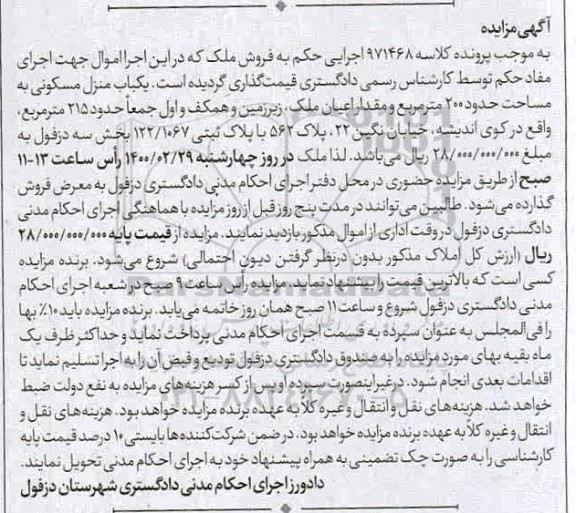 آگهی مزایده
به موجب پرونده کلاسه ۹۷۱۴۶۸ اجرایی حکم به فروش ملک که در این اجرا اموال جهت اجرای
مفاد حکم توسط کارشناس رسمی دادگستری قیمت‌گذاری گردیده است. یکباب منزل مسکونی به
مساحت حدود ۲۰۰ مترمربع و مقدار اعیان ملک، زیرزمین و همکف و اول جمعاً حدود ۲۱۵ مترمربع،
واقع در کوی اندیشه، خیابان نگین ۲۲، پلاک ۵۶۲ با پلاک ثبتی ۱۲۲/۱۰۶۷ بخش سه دزفول به
مبلغ ۲۸/۰۰۰/۰۰۰/۰۰۰ ریال می‌باشد. لذا ملک در روز چهارشنبه ۱۴۰۰/۰۲/۲۹ رأس ساعت ۱۳-۱۱
صبح از طریق مزایده حضوری در محل دفتر اجرای احکام مدنی دادگستری دزفول به معرض فروش
گذارده می‌شود. طالبین می‌توانند در مدت پنج روز قبل از روز مزایده با هماهنگی اجرای احکام مدنی
دادگستری دزفول در وقت اداری از اموال مذکور بازدید نمایند. مزایده از قیمت پایه ۲۸/۰۰۰/۰۰۰/۰۰۰
ریال (ارزش کل املاک مذکور بدون درنظر گرفتن دیون احتمالی) شروع می‌شود. برنده مزایده
کسی است که بالاترین قیمت را پیشنهاد نماید. مزایده رأس ساعت ۹ صبح در شعبه اجرای احکام
مدنی دادگستری دزفول شروع و ساعت ۱۱ صبح همان روز خاتمه می‌یابد. برنده مزایده باید ۱۰٪ بها
را فی‌المجلس به عنوان سپرده به قسمت اجرای احکام مدنی پرداخت نماید و حداکثر ظرف یک
ماه بقیه بهای مورد مزایده را به صندوق دادگستری دزفول تودیع و قبض آن را به اجرا تسلیم نماید تا
اقدامات بعدی انجام شود. درغیراینصورت سپرده او پس از کسر هزینه‌های مزایده به نفع دولت ضبط
خواهد شد. هزینه‌های نقل و انتقال و غیره کلاً به عهده برنده مزایده خواهد بود. هزینه‌های نقل و
انتقال و غیره کلاً به عهده برنده مزایده خواهد بود. در ضمن شرکت‌کننده‌ها بایستی ۱۰ درصد قیمت پایه
کارشناسی را به صورت چک تضمینی به همراه پیشنهاد خود به اجرای احکام مدنی تحویل نمایند.
دادورز اجرای احکام مدنی دادگستری شهرستان دزفول